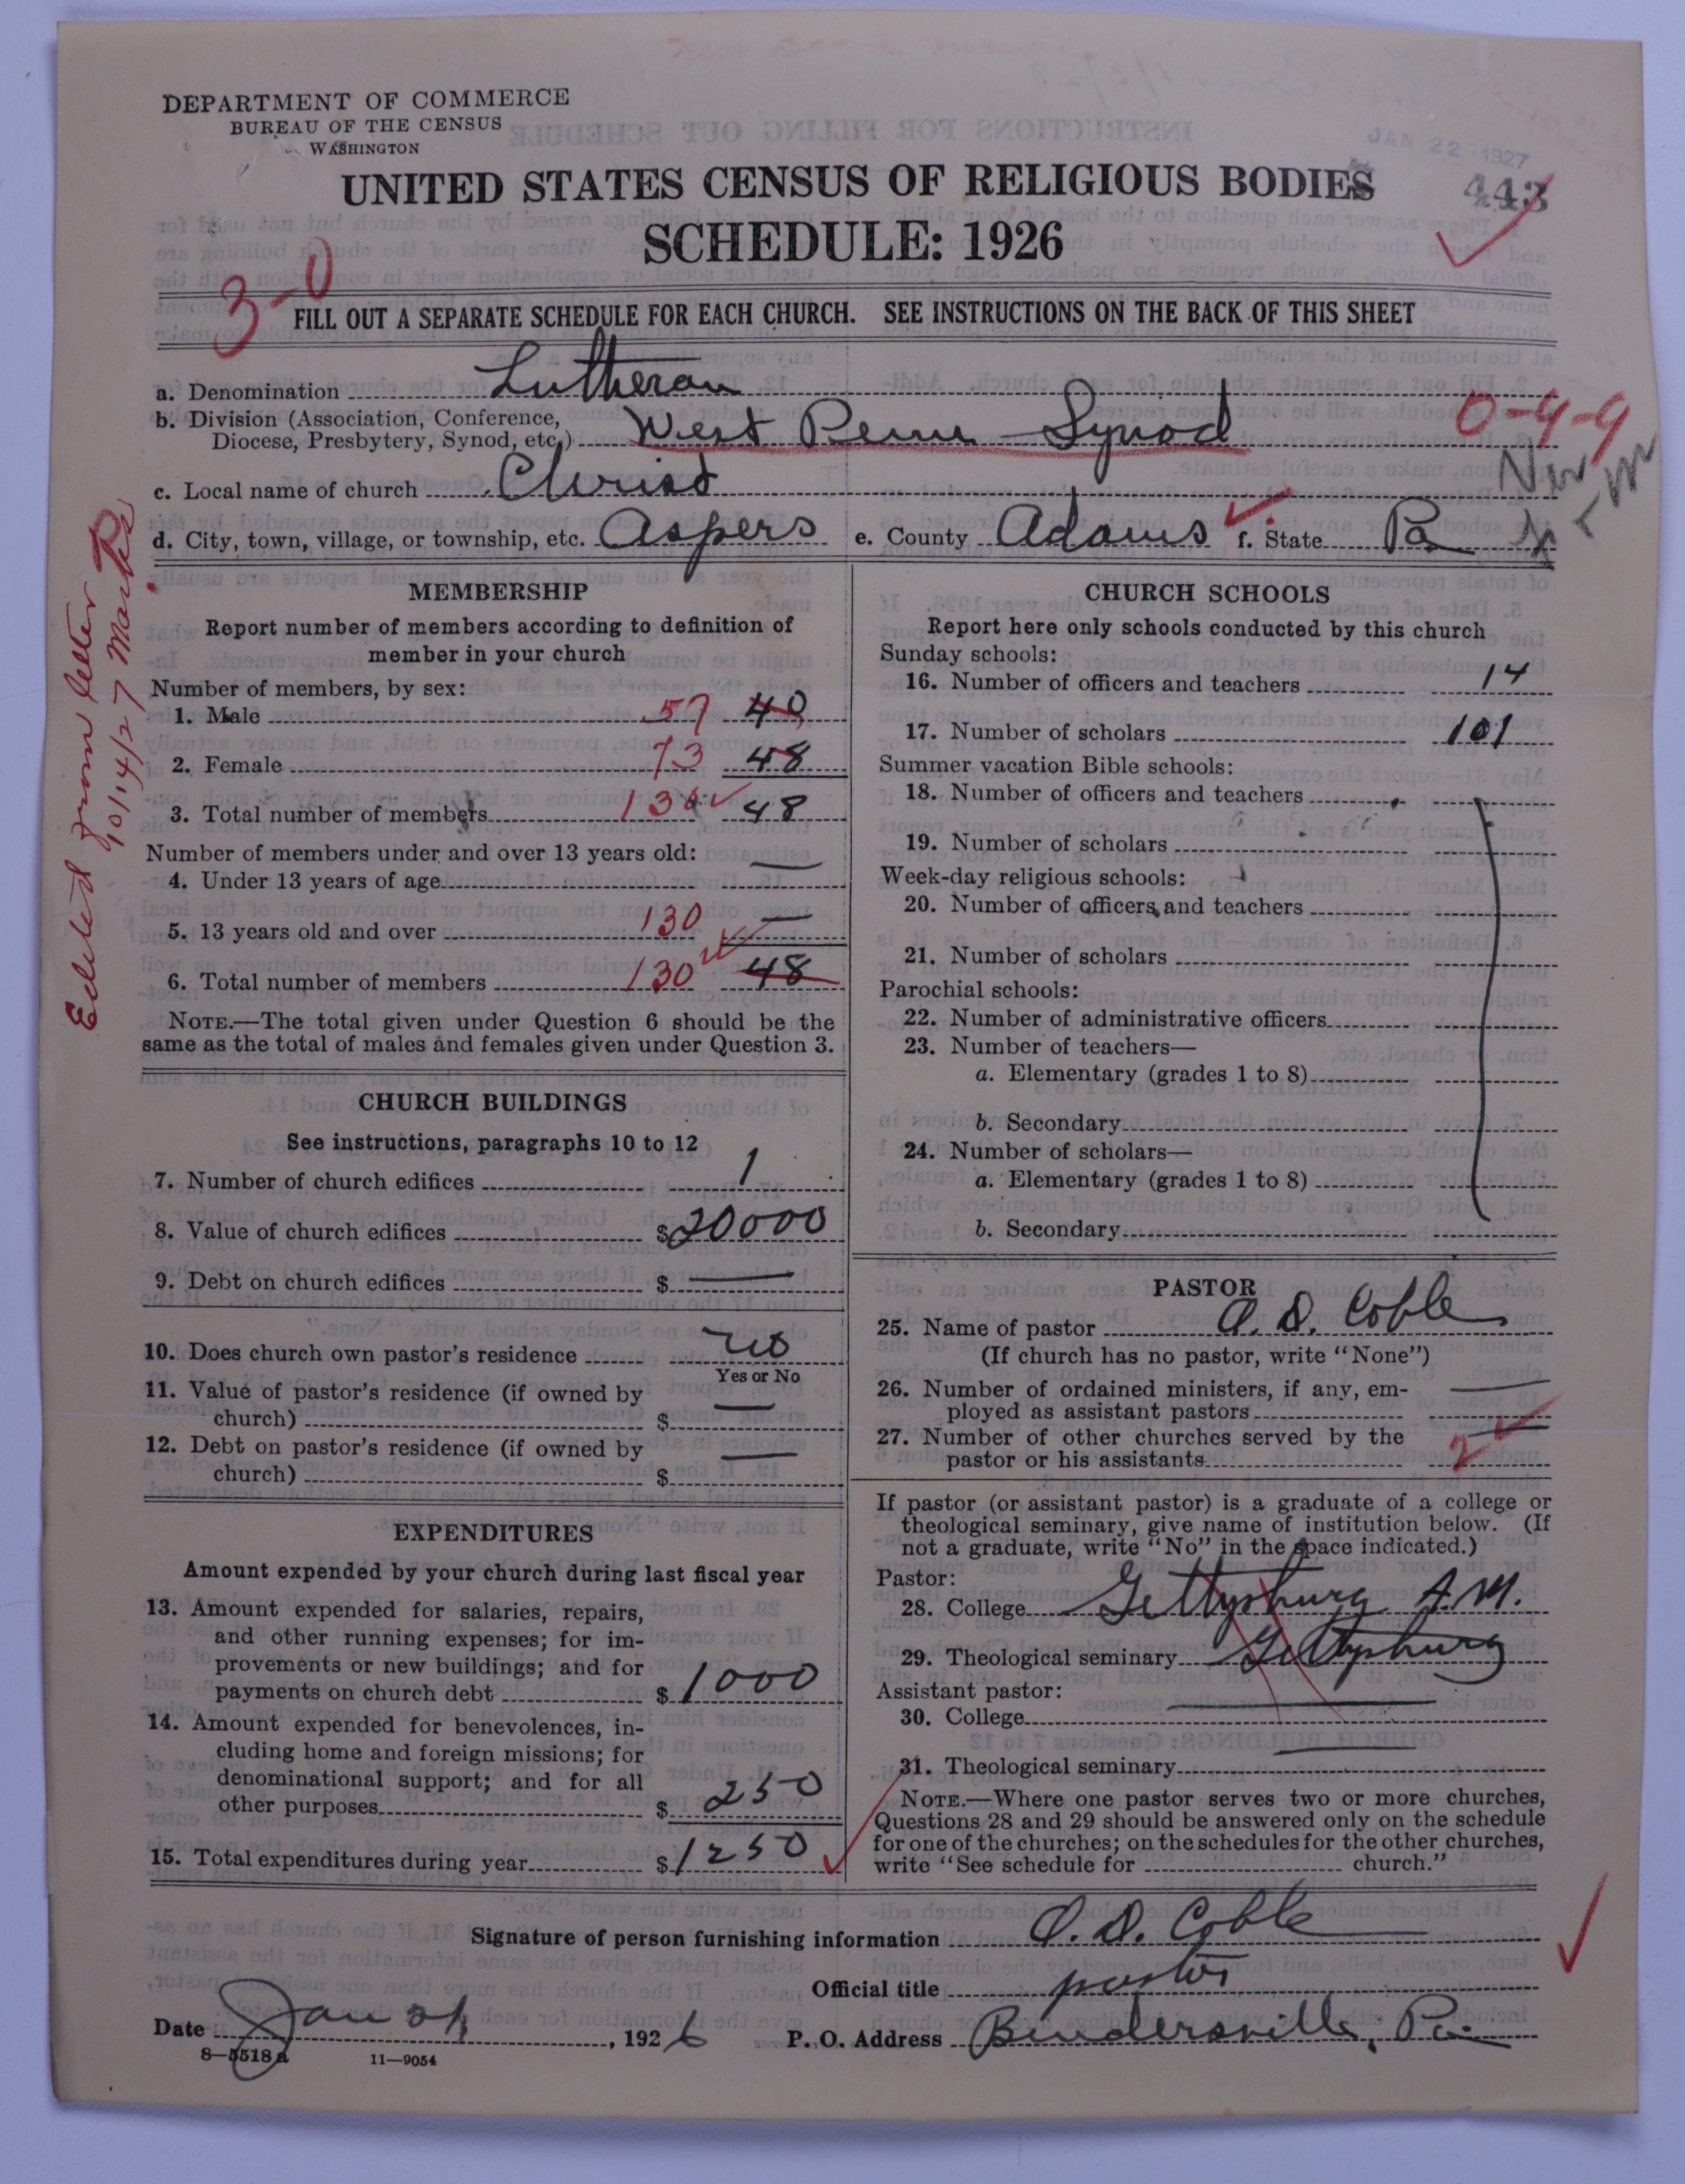 DEPARTMENT OF COMMERCE
BUREAU OF THE CENSUS
WASHINGTON
JAN 22 1927
UNITED STATES CENSUS OF RELIGIOUS BODIES
443
SCHEDULE: 1926
3-0
FILL OUT A SEPARATE SCHEDULE FOR EACH CHURCH. SEE INSTRUCTIONS ON THE BACK OF THIS SHEET
a. Denomination Lutheran
b. Division (Association, Conference,
Diocese, Presbytery, Synod, etc.) West Penn Synod
0-4-9
c. Local name of church Christ
d. City, town, village, or township, etc. Aspers e. County Adams f. State Pa
from letter
10/14/27
MEMBERSHIP
Report number of members according to definition of
member in your church
Number of members, by sex:
1. Male 57 40
2. Female 73 48
3. Total number of members 130 48
Number of members under and over 13 years old:
4. Under 13 years of age —
5. 13 years old and over 130 —
6. Total number of members 130 48
NOTE.—The total given under Question 6 should be the
same as the total of males and females given under Question 3.
CHURCH BUILDINGS
See instructions, paragraphs 10 to 12
7. Number of church edifices 1
8. Value of church edifices $20000
9. Debt on church edifices $ —
10. Does church own pastor's residence no
Yes or No
11. Value of pastor's residence (if owned by
church) $ —
12. Debt on pastor's residence (if owned by
church) $ —
EXPENDITURES
Amount expended by your church during last fiscal year
13. Amount expended for salaries, repairs,
and other running expenses; for im-
provements or new buildings; and for
payments on church debt $1000
14. Amount expended for benevolences, in-
cluding home and foreign missions; for
denominational support; and for all
other purposes $ 250
15. Total expenditures during year $1250
CHURCH SCHOOLS
Report here only schools conducted by this church
Sunday schools:
16. Number of officers and teachers 14
17. Number of scholars 101
Summer vacation Bible schools:
18. Number of officers and teachers
19. Number of scholars
Week-day religious schools:
20. Number of officers and teachers
21. Number of scholars
Parochial schools:
22. Number of administrative officers
23. Number of teachers—
a. Elementary (grades 1 to 8)
b. Secondary
24. Number of scholars—
a. Elementary (grades 1 to 8)
b. Secondary
PASTOR
25. Name of pastor A. D. Coble
(If church has no pastor, write "None")
26. Number of ordained ministers, if any, em-
ployed as assistant pastors —
27. Number of other churches served by the
pastor or his assistants — 2
If pastor (or assistant pastor) is a graduate of a college or
theological seminary, give name of institution below. (If
not a graduate, write "No" in the space indicated.)
Pastor:
28. College Gettysburg A.M.
29. Theological seminary Gettysburg
Assistant pastor:
30. College —
31. Theological seminary —
NOTE.—Where one pastor serves two or more churches,
Questions 28 and 29 should be answered only on the schedule
for one of the churches; on the schedules for the other churches,
write "See schedule for church."
Signature of person furnishing information A. D. Coble
Official title pastor
Date Jan 21, 1926 P. O. Address Bendersville, Pa.
8—5518a 11—9054